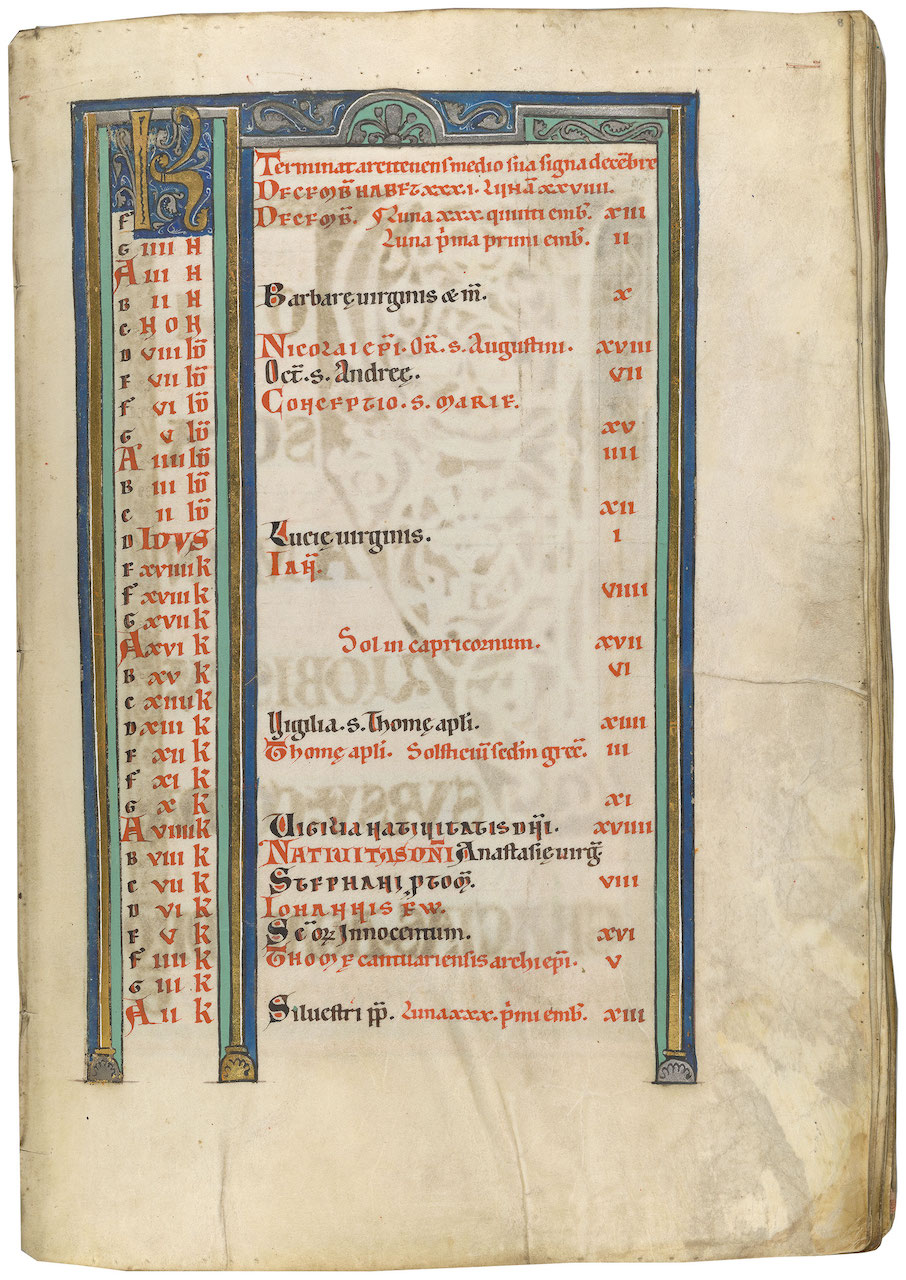 Terminat arcitenens medio sua signa decēbre
KL DECEMB̄ HABET XXXI. LUNĀ XXVIIII.
F DECEMB̄. Luna xxx. quinti emb̄. XIII
G IIII N Luna p̄ma primi emb̄. II
A III N
B II N Barbarę uirginis & m̄. X
C NON
D VIII ID̄ NICOLAI ep̄i. Or̄. s. Augustini. XVIII
E VII ID̄ Oct̄. s. Andreę. VII
F VI ID̄ CONCEPTIO. S. MARIE.
G V ID̄ XV
A IIII ID̄ IIII
B III ID̄
C II ID̄ XII
D IDVS Lucię uirginis. I
E XVIIII K IAN̄.
F XVIII K VIIII
G XVII K
A XVI K Sol in capricornum. XVII
B XV K VI
C XIIII K
D XIII K Vigilia. s. Thomę apli. XIIII
E XII K Thomę apli. Solsticiū sedm grec̄. III
F XI K
G X K XI
A VIIII K VIGILIA NATIVITATIS DN̄I. XVIIII
B VIII K NATIVITAS DN̄I Anastasię uirḡ
C VII K STEPHANI PTOM̄. VIII
D VI K IOHANNIS EW.
E V K Sc̄orꝝ Innocentum. XVI
F IIII K THOMĘ cantuariensis archiep̄i. V
G III K
A II K Siluestri pp̄. Luna xxx. p̄mi emb̄. XIII